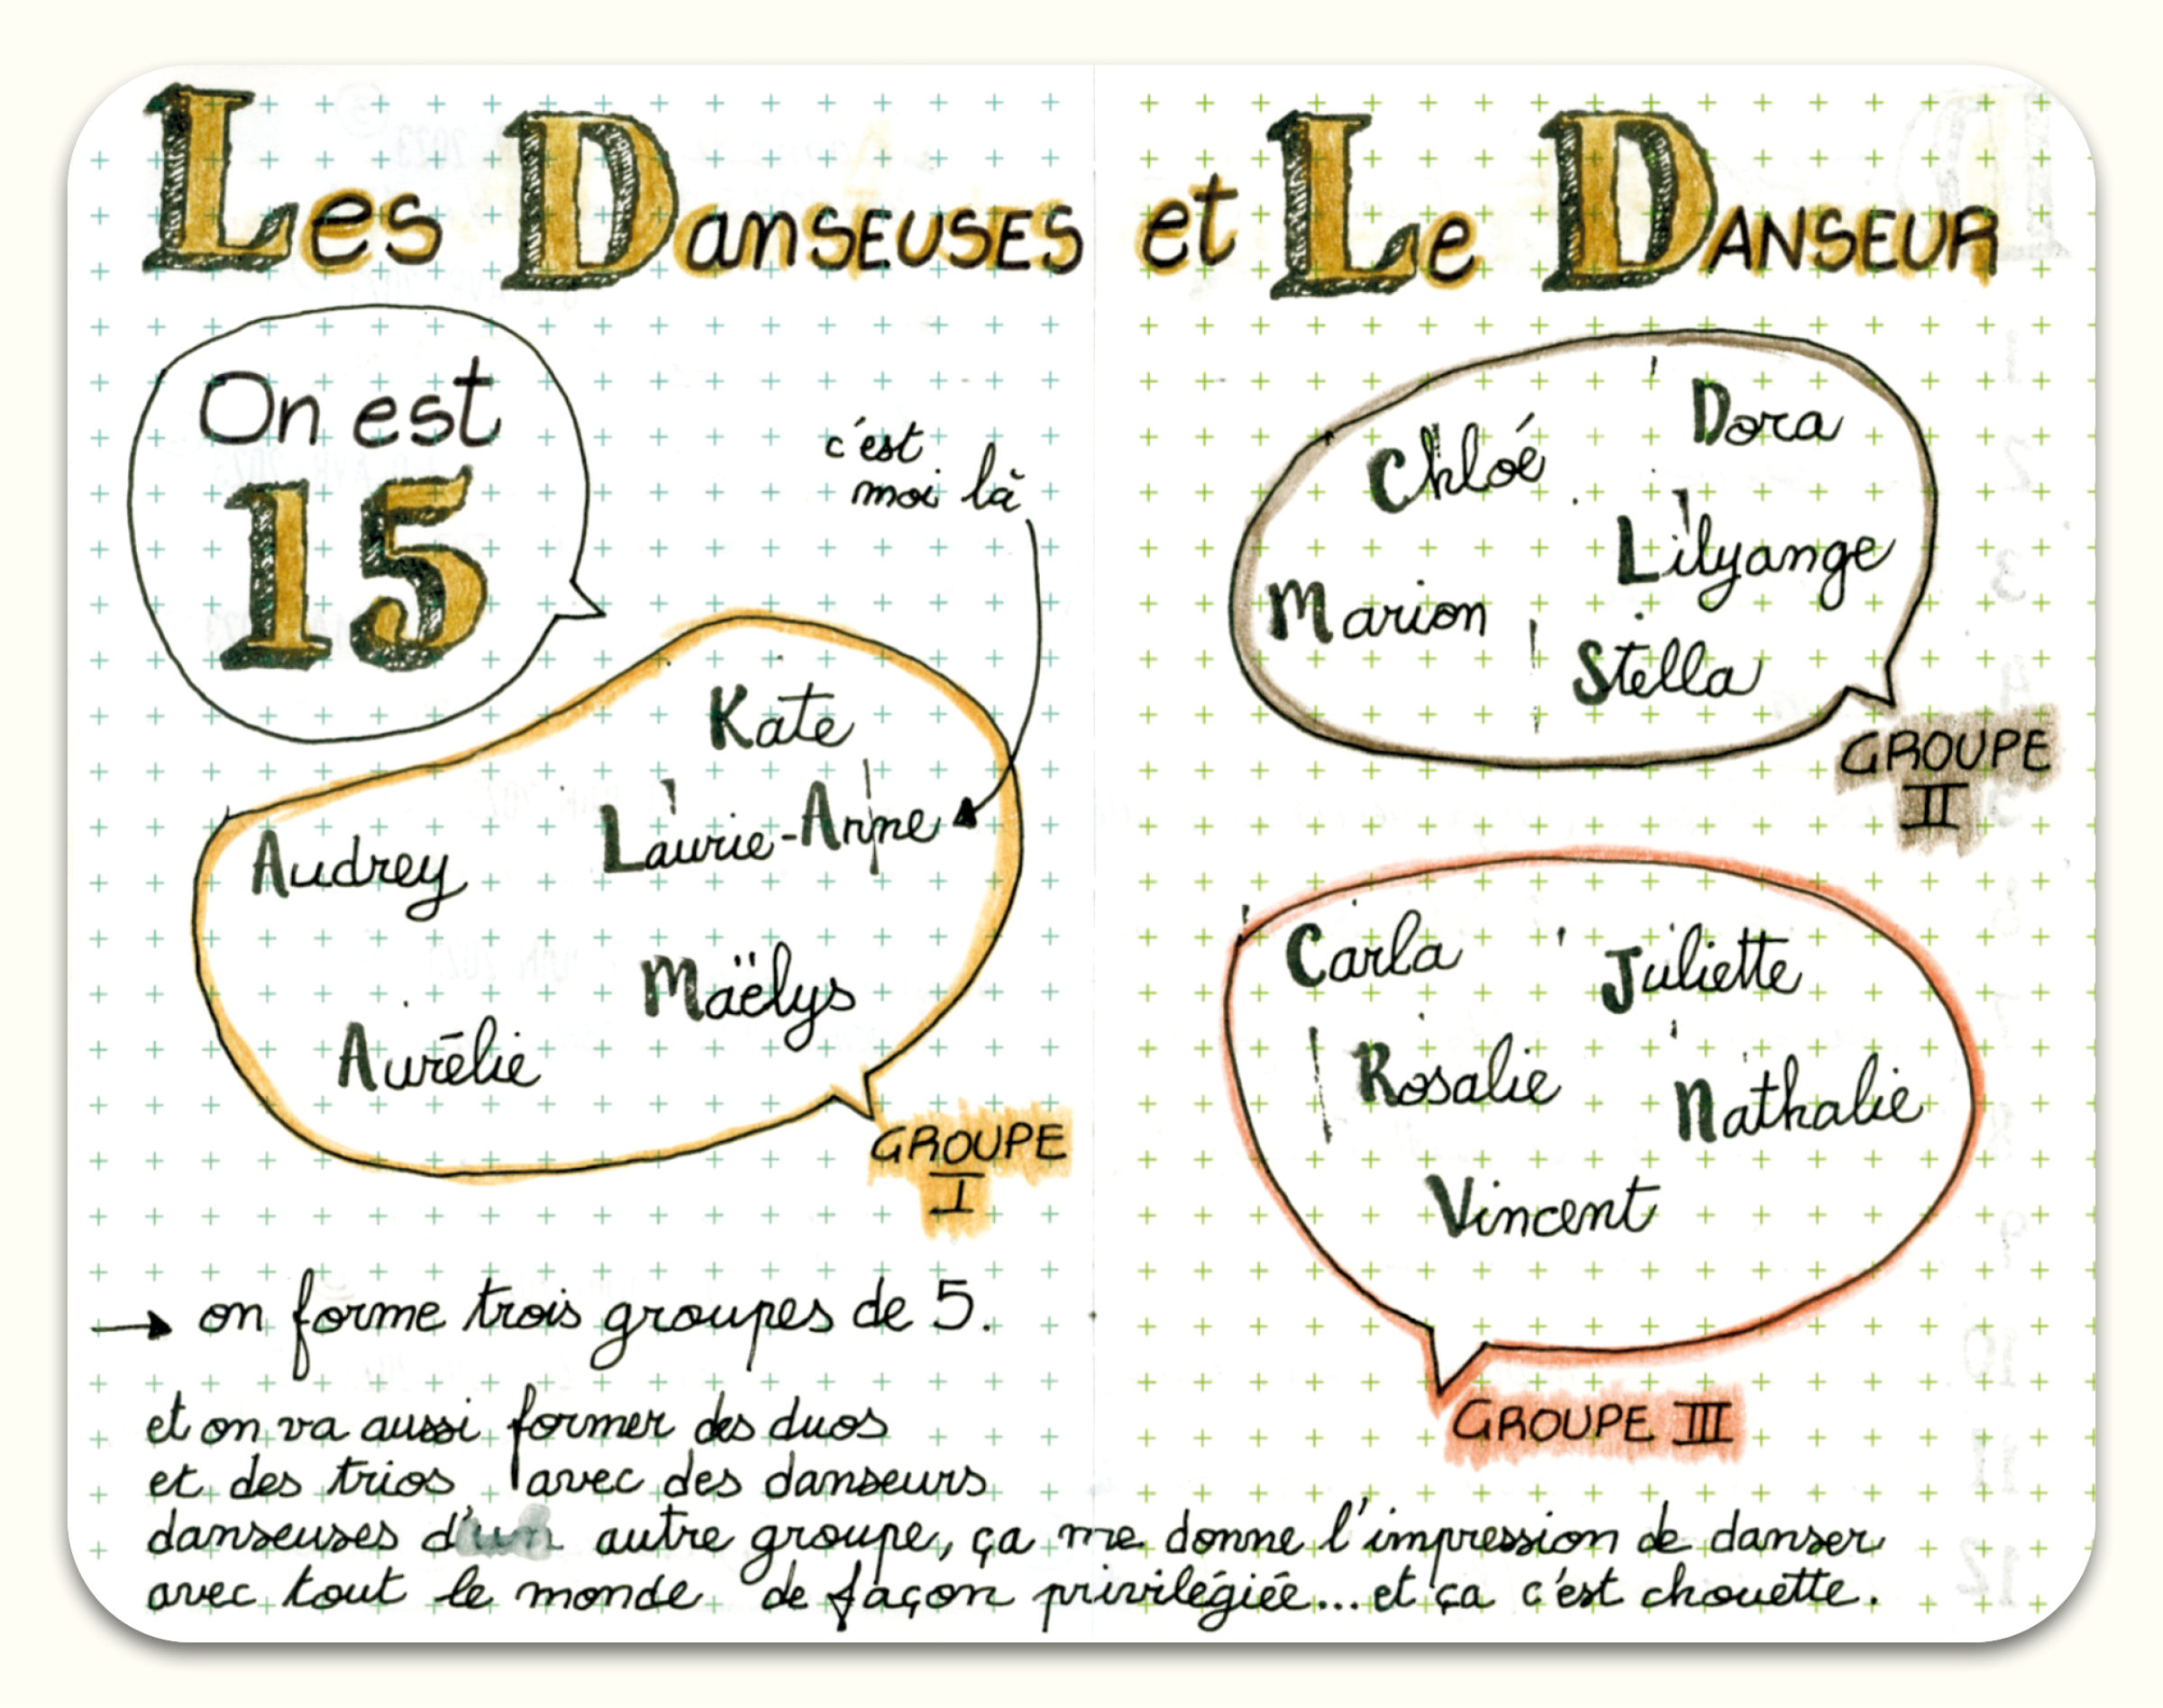 Les Danseuses et Le Danseur
On est
15
c'est
moi là
Kate
Laurie-Anne
Audrey
Maëlys
Aurélie
GROUPE
I
Chloé
Dora
Lilyange
Marion
Stella
GROUPE
II
Carla
Juliette
Rosalie
Nathalie
Vincent
GROUPE III
→ on forme trois groupes de 5.
et on va aussi former des duos
et des trios avec des danseurs
danseuses d'un autre groupe, ça me donne l'impression de danser
avec tout le monde de façon privilégiée... et ça c'est chouette.